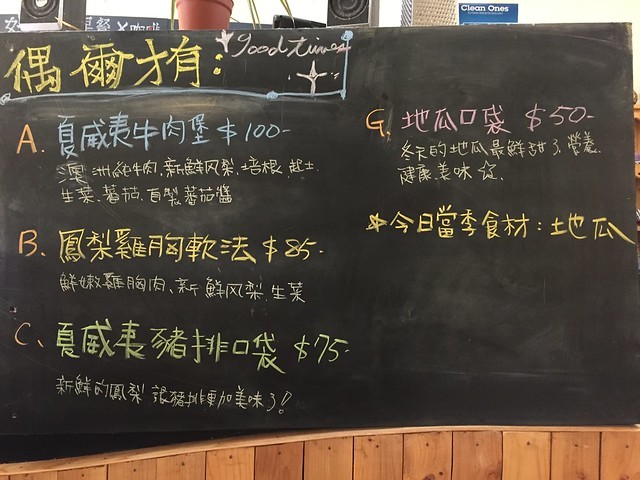 Clean Ones
偶爾才有:
good times
A. 夏威夷牛肉堡 $100-
澳洲純牛肉.新鮮风梨.培根.起士
生菜.蕃茄.自製蕃茄醬
B. 鳳梨雞胸軟法 $85-
鮮嫩雞胸肉、新鮮风梨.生菜
C. 夏威夷豬排口袋 $75-
新鮮的鳳梨 跟豬排更加美味了!
G. 地瓜口袋 $50-
冬天的地瓜最鮮甜了.營養.
健康.美味☆
☆今日當季食材:土地瓜